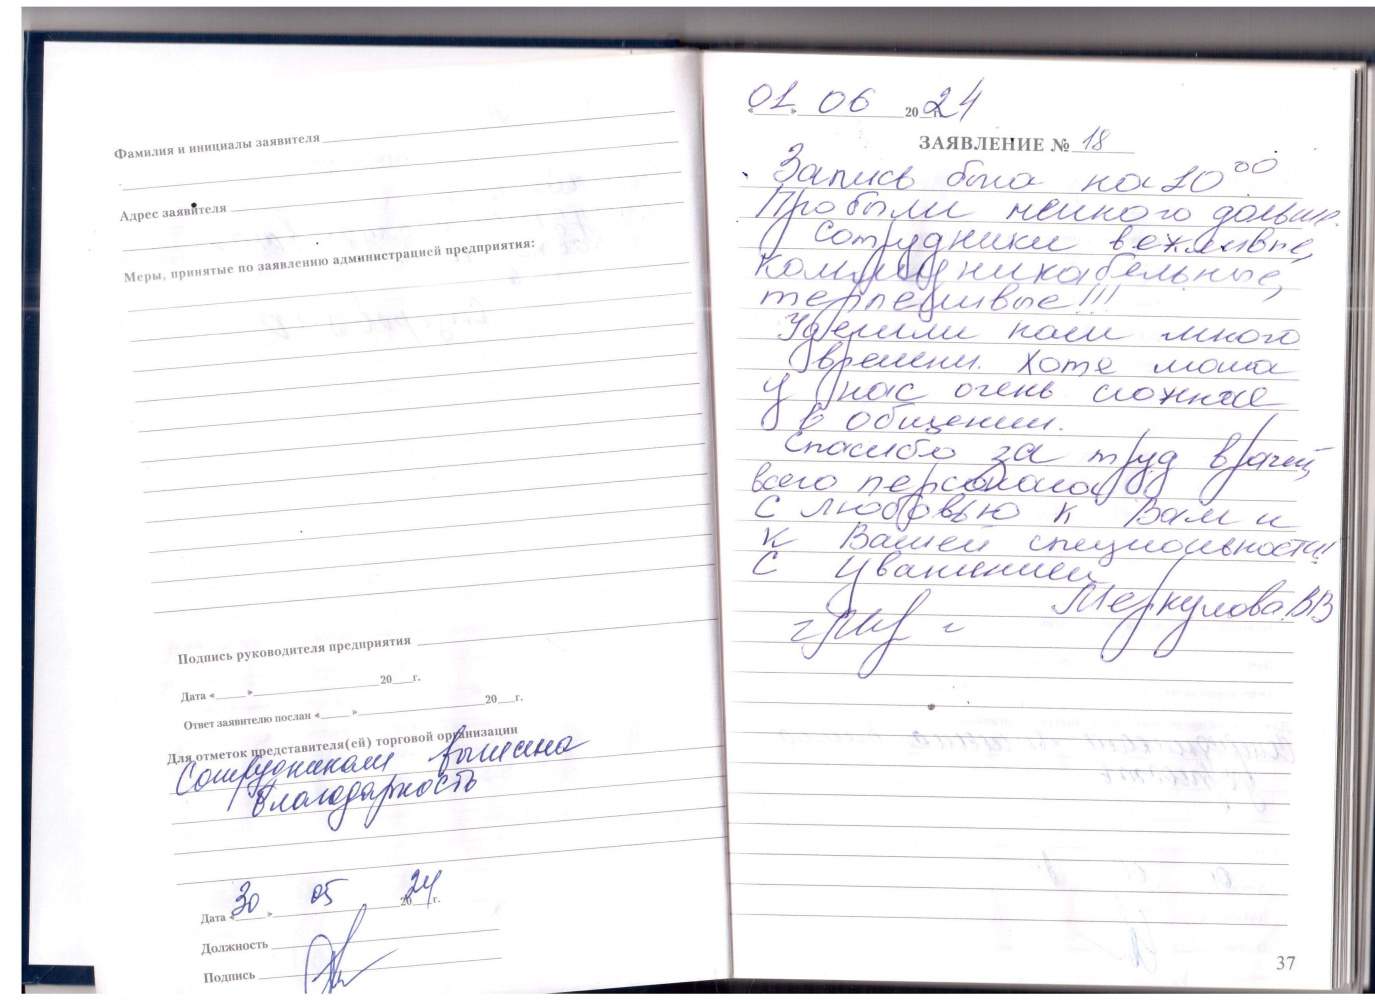 Фамилия и инициалы заявителя
Адрес заявителя
Меры, принятые по заявлению администрацией предприятия:
Подпись руководителя предприятия
Дата «___» 20__г.
Ответ заявителю послан «___» 20__г.
Для отметок представителя(ей) торговой организации
Сотрудникам
благодарность
Дата «30» 05 2024г.
Должность
Подпись
«01» 06 2024
ЗАЯВЛЕНИЕ № 18
Запись была на 10 00
Пробыли немного дольше.
Сотрудники вежливые,
коммуникабельные,
терпеливые!!!
Уделили нам много
времени. Хотя мама
у нас очень сложная
в общении.
Спасибо за труд врачей,
всего персонала
С любовью к Вам и
к Вашей специальности!!
С уважением
Меркулова ВВ
37